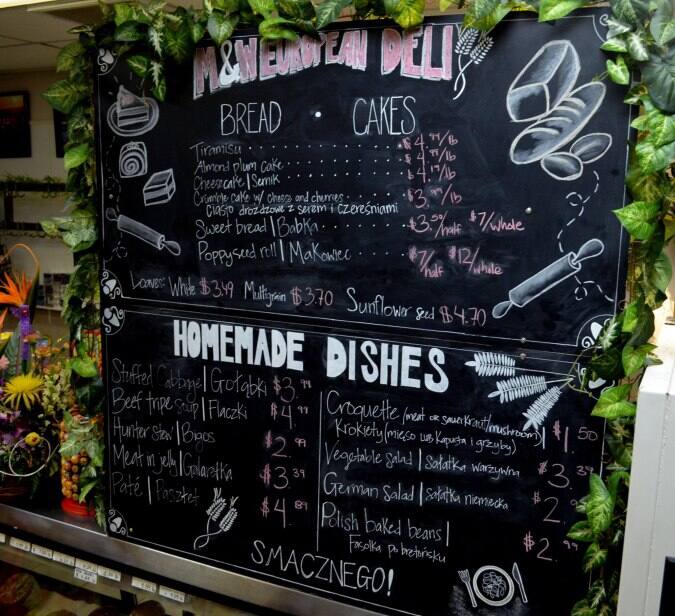 M&W EUROPEAN DELI
BREAD • CAKES
Tiramisu $4.99/lb
Almond plum cake $4.99/lb
Cheesecake | Sernik $4.19/lb
Crumble cake w/ cheese and cherries $3.99/lb
Ciasto drożdżowe z serem i czereśniami
Sweet bread | Babka $3.50/half $7/whole
Poppyseed roll | Makowiec $7/half $12/whole
Loaves: White $3.49 Multigrain $3.70 Sunflower seed $4.70
HOMEMADE DISHES
Stuffed Cabbage | Gołąbki $3.99
Beef tripe soup | Flaczki $4.99
Hunter stew | Bigos $2.99
Meat in jelly | Galaretka $3.39
Paté | Pasztet $4.89
Croquette (meat or sauerkraut/mushroom) | $1.50
Krokiety (mięso lub kapusta i grzyby)
Vegetable salad | sałatka warzywna $3.39
German salad | sałatka niemiecka $2.
Polish baked beans | $2.99
Fasolka po bretońsku
SMACZNEGO!